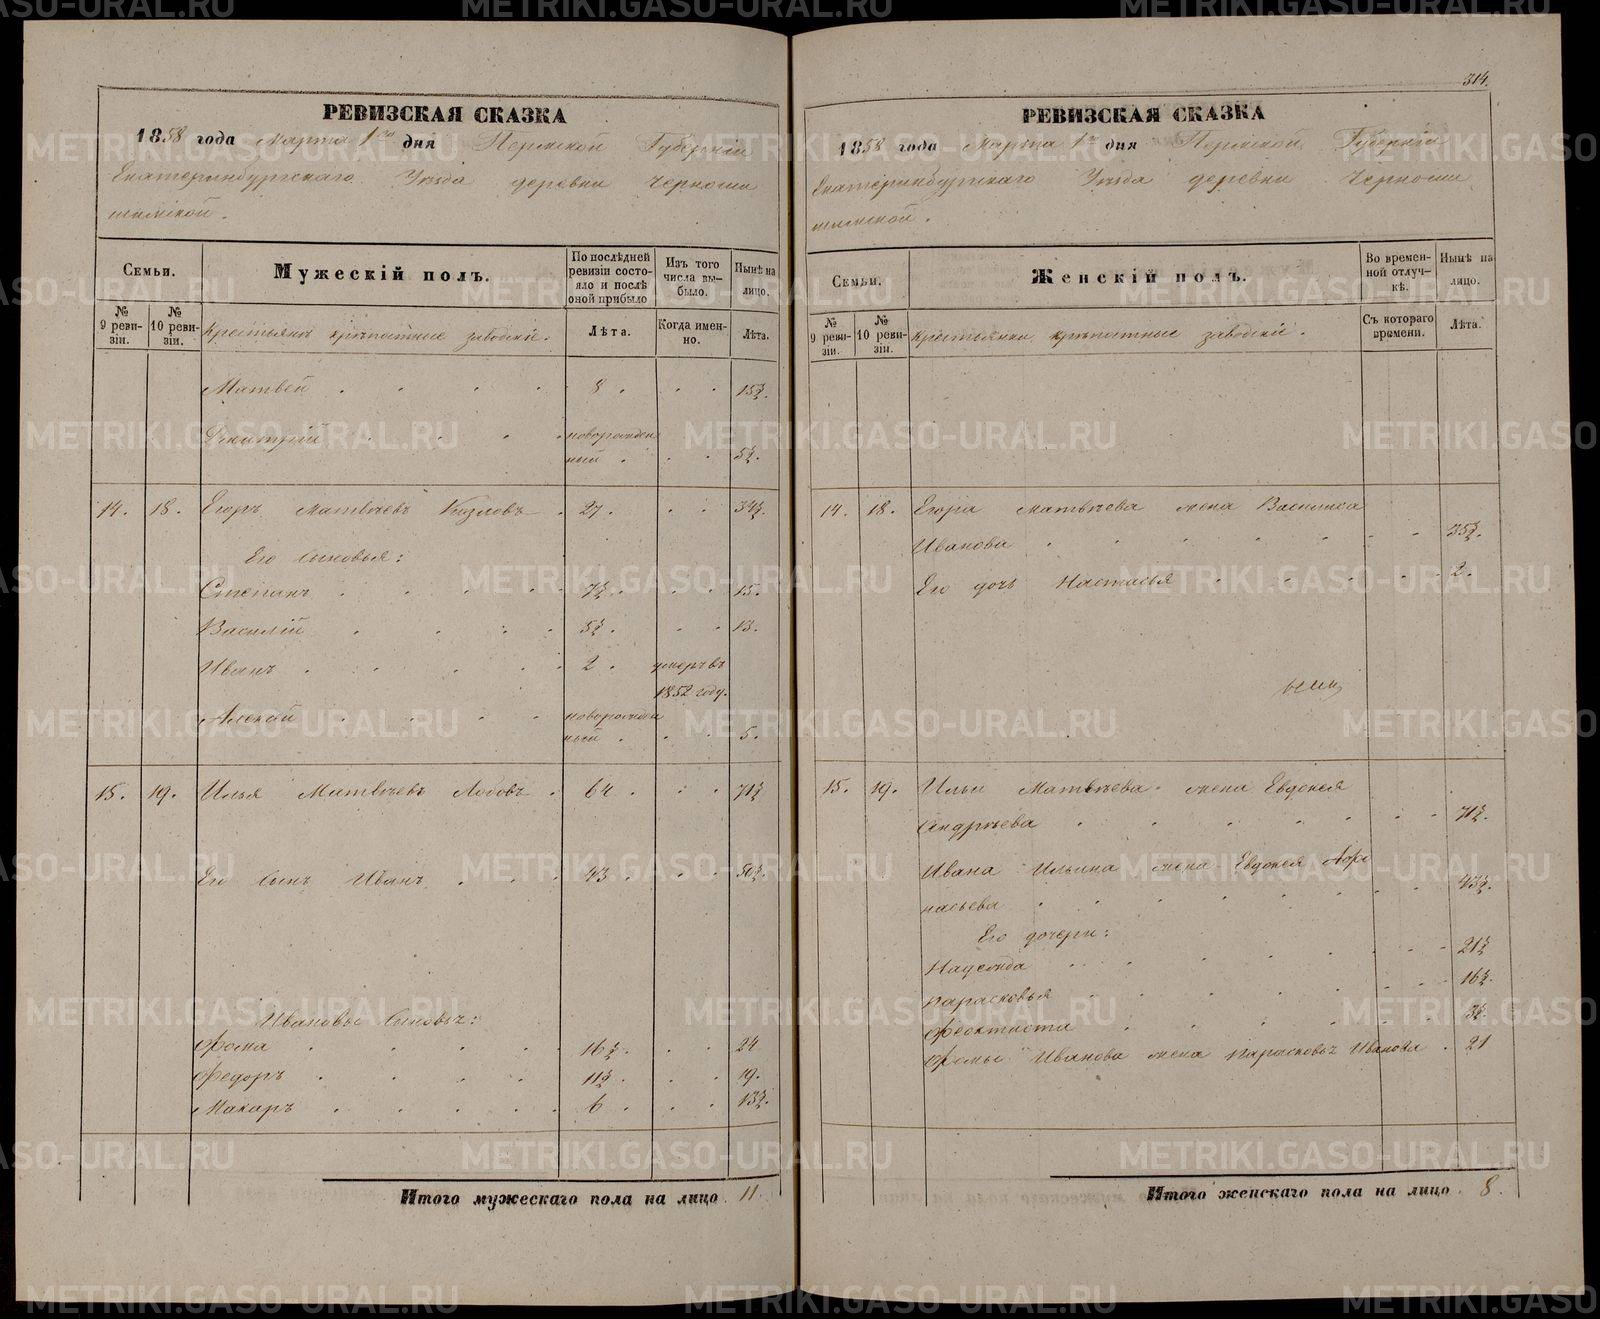 314.
РЕВИЗСКАЯ СКАЗКА
1858 года Марта 1го дня Пермской Губерніи
Екатеринбургскаго Уѣзда деревни Черноши
шимской.
Семьи.
Мужескій полъ.
По послѣдней ревизіи состояло и послѣ оной прибыло
Изъ того числа выбыло.
Нынѣ на лицо.
№ 9 ревизіи.
№ 10 ревизіи.
Крестьяне крѣпостные заводскіе.
Лѣта.
Когда именно.
Лѣта.
Матвей . . . . 8 . . . 15½.
Дмитрій . . . . новорожден
ный . . . 5½.
14. 18. Егоръ Матвѣевъ Козловъ . 27. . . 34½.
Его сыновья:
Степанъ . . . . 7½. . . 15.
Василій . . . . 5½. . . 13.
Иванъ . . . . 2 . умеръ въ
1852 году.
Алексей . . . . новорожден
ный . . . 5.
15. 19. Илья Матвѣевъ Лобовъ . 64 . . . 71½
Его сынъ Иванъ . . . 43 . . . 50½.
Ивановы сыновья:
Фома . . . . 16½. . . 24
Федоръ . . . . 11½. . . 19.
Макаръ . . . . 6 . . . 13½.
Итого мужескаго пола на лицо 11.
РЕВИЗСКАЯ СКАЗКА
1858 года Марта 1го дня Пермской Губерніи
Екатеринбургскаго Уѣзда деревни Черноши
шимской.
Семьи.
Женскій полъ.
Во временной отлучкѣ.
Нынѣ на лицо.
№ 9 ревизіи.
№ 10 ревизіи.
Крестьянки крѣпостные заводскіе.
Съ котораго времени.
Лѣта.
14. 18. Егора Матвѣева жена Василиса
Иванова . . . . . . . 35½.
Его дочь Настасья . . . . . 2.
15. 19. Ильи Матвѣева жена Евдокея
Андрѣева . . . . . . . 71½.
Ивана Ильина жена Евдокея Афа
насьева . . . . . . . 43½.
Его дочери:
Надежда . . . . . . 21½
Парасковья . . . . . . 16½.
Феоктиста . . . . . . 3½.
Фомы Иванова жена Парасковья Иванова . 21
Итого женскаго пола на лицо . 8.
METRIKI.GASO-URAL.RU